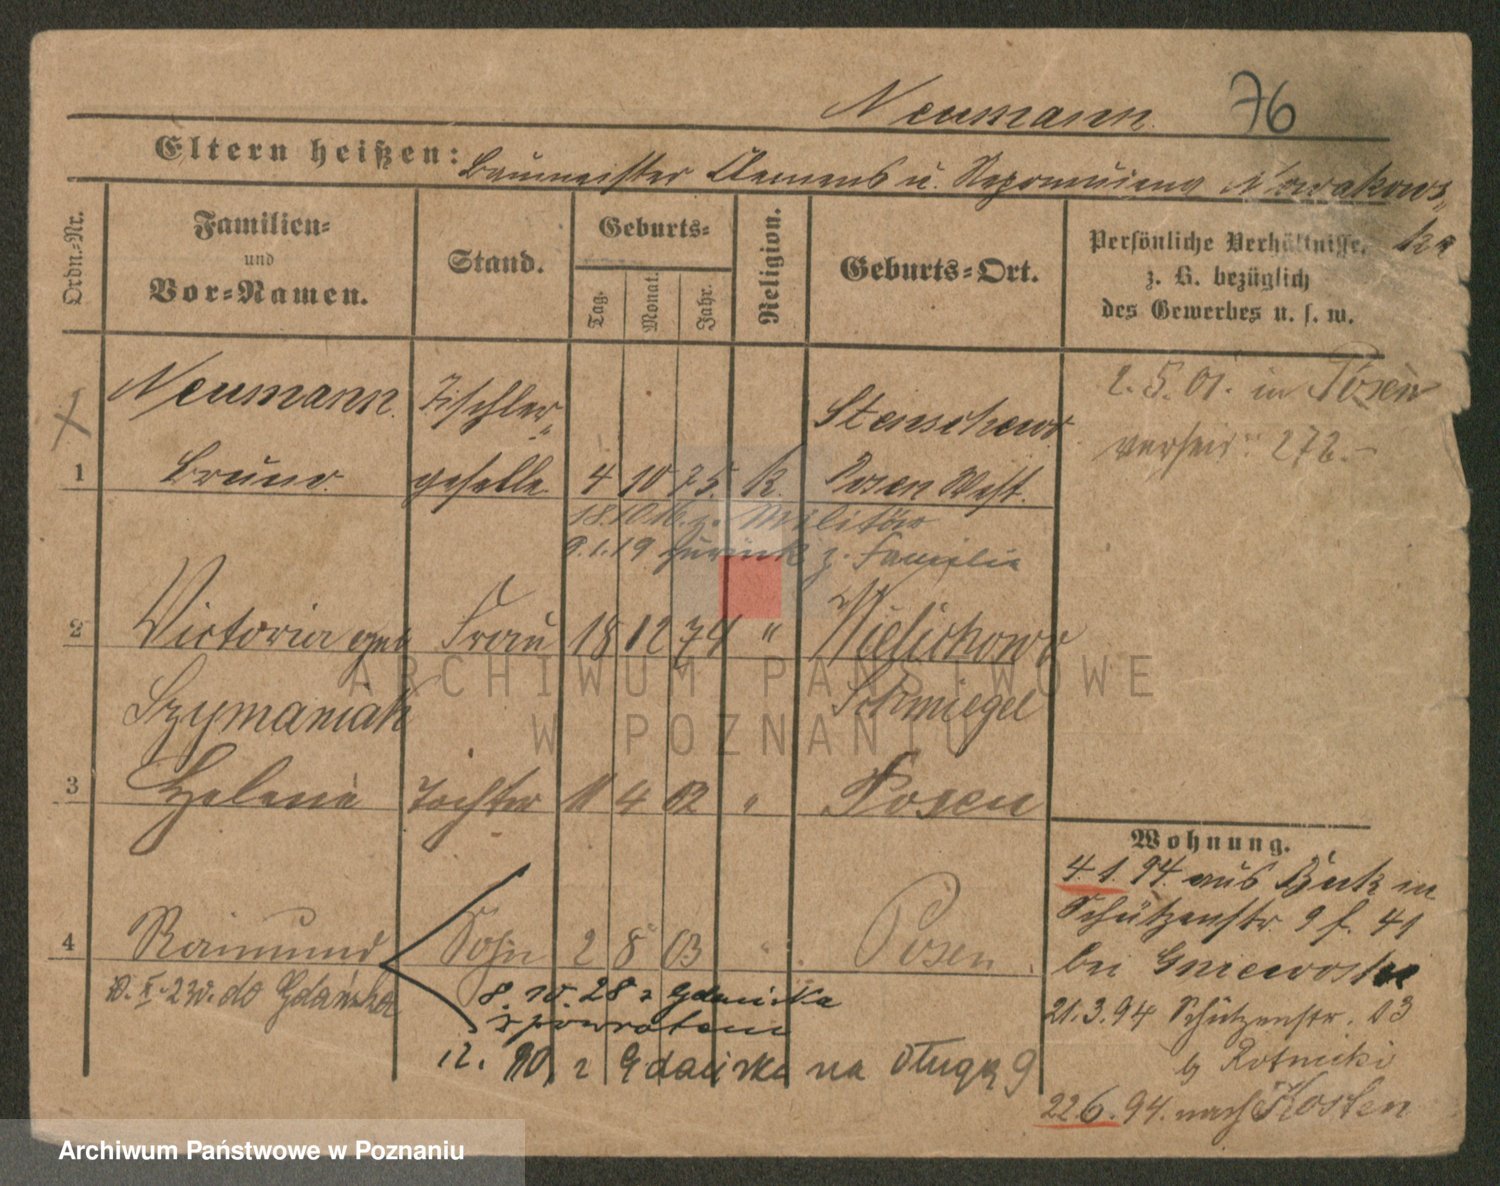 Neumann 76
Eltern heißen: Baumeister Clemens u. Nepomucena Nowakows
ka
Ordn.-Nr.
Familien-
und
Vor-Namen.
Stand.
Geburts-
Tag.
Monat.
Jahr.
Religion.
Geburts-Ort.
Persönliche Verhältnisse,
z. B. bezüglich
des Gewerbes u. s. w.
Neumann Tischler- Stenschewo
1 Bruno geselle 4 10 75. k. Posen West.
2.5.01. in Posen
verheir: 272.-
18.10.16. z. Militär
9.1.19 zurück z. Familie
2 Victoria geb Frau 18 12 74 " Wielichowo
Szymaniak Schmiegel
3 Helene Tochter 11 4 02 " Posen
4 Raimund Sohn 2 8 03 " Posen
do Gdańska
8.10.28 z Gdańska
z powrotem
12. z Gdańska na Długą 9
Wohnung.
4.1.94. aus Buk in
Schützenstr 9 f. 41
bei
21.3.94 Schützenstr. 03
b Rotnicki
22 6.94. nach Kosten
ARCHIWUM PAŃSTWOWE
W POZNANIU
Archiwum Państwowe w Poznaniu